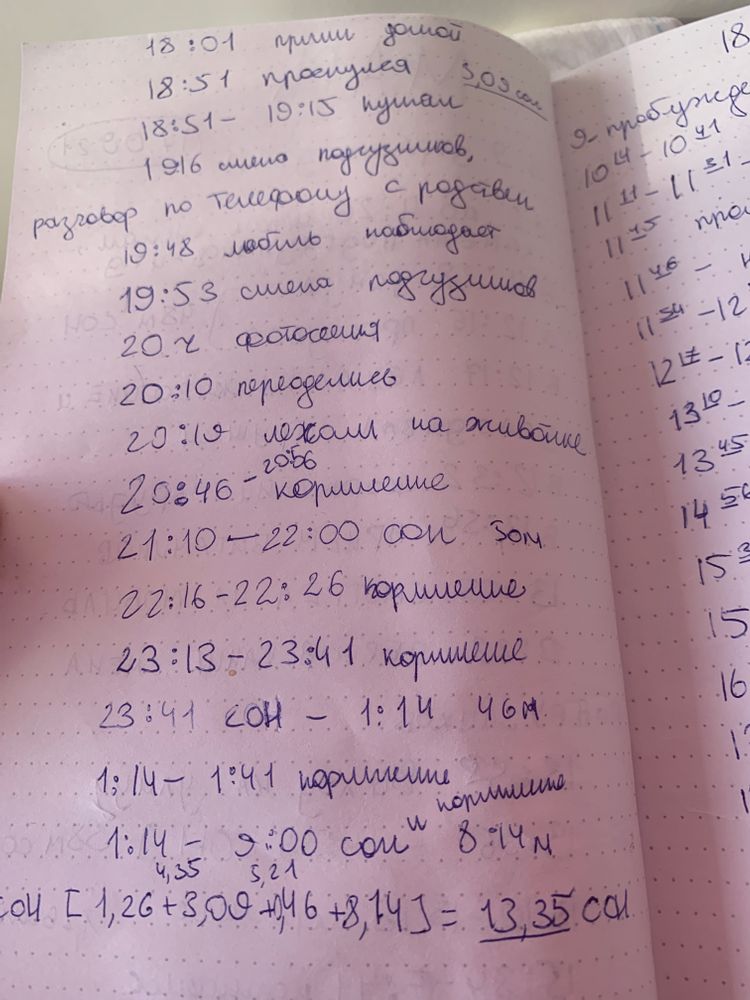 18:01 пришли домой
18:51 проснулся 3,09 сон
18:51 - 19:15 кушали
1916 смена подгузников,
разговор по телефону с родствен
19:48 мобиль наблюдает
19:53 смена подгузников
20 ч фотосессия
20:10 переоделись
20:19 лежали на животике
20:46 - 20:56 кормление
21:10 — 22:00 сон 50м
22:16-22:26 кормление
23:13 - 23:41 кормление
23:41 сон - 1:14 46м
1:14 - 1:41 кормление
1:14 - 9:00 сон и кормление 8:14м
4,35 5,21
сон [1,26+3,09+1,46+8,14] = 13,35 сон
18
9- пробужде
10 14 - 10 41
11 11 - 11 31 -
11 45
11 46 -
11 54 - 12
12 17 - 12
13 10 -
13 45
14 56
15 3
15
16